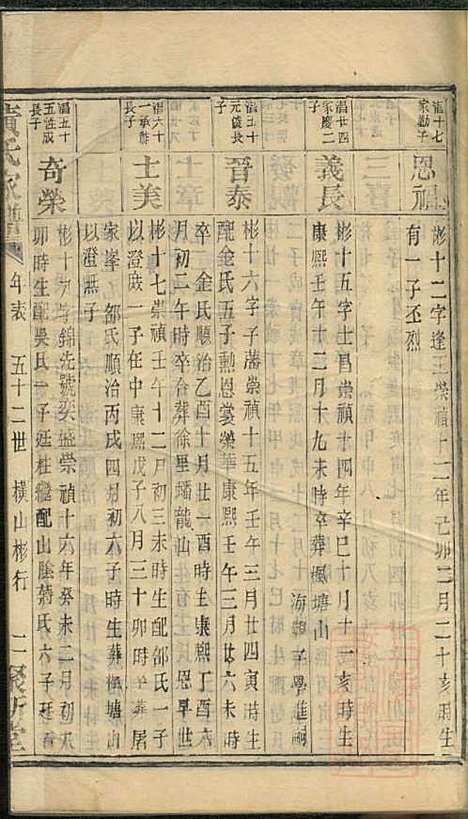 瑺十七
家勷子
恩祖
彬十二字逢王崇禎十二年己卯二月二十亥時生
有一子丕烈
瑺廿四
家慶二
子
義長
彬十五字士昌崇禎十四年辛巳十月十一亥時生
康熙壬午十二月十九未時卒葬楓塘山
瑺五十
元儀長
子
晉泰
彬十六字子藩崇禎十五年壬午三月廿四寅時生
配金氏五子勲恩裳榮華康熙壬午三月廿六未時
卒金氏順治乙酉十月廿一酉時生康熙丁酉六
月初二午時卒合葬徐里蟠龍山 恩早世
瑺六十
一承勝
長子
士美
彬十七崇禎壬午十二月初三未時生配邵氏一子
以澄歲一子在中康熙戊子八月三十卯時卒葬屠
家峯 邵氏順治丙戌四月初六子時生葬楓塘山
以澄無子
瑺五十
五盛成
長子
奇榮
彬十九字錦先號奕盛崇禎十六年癸未二月初八
卯時生配吳氏一子廷柱繼配山陰蔣氏六子廷
黃氏家譜
年表
五十二世
橫山彬行
二
聚所堂